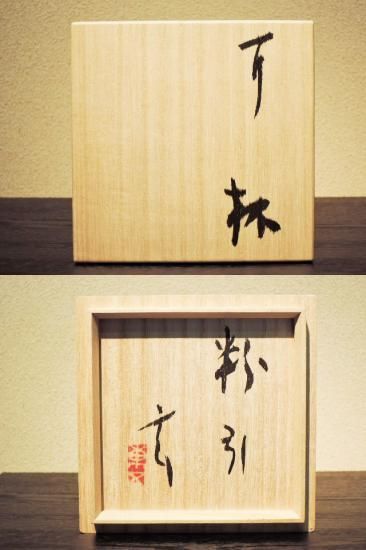 耳
杯
粉引